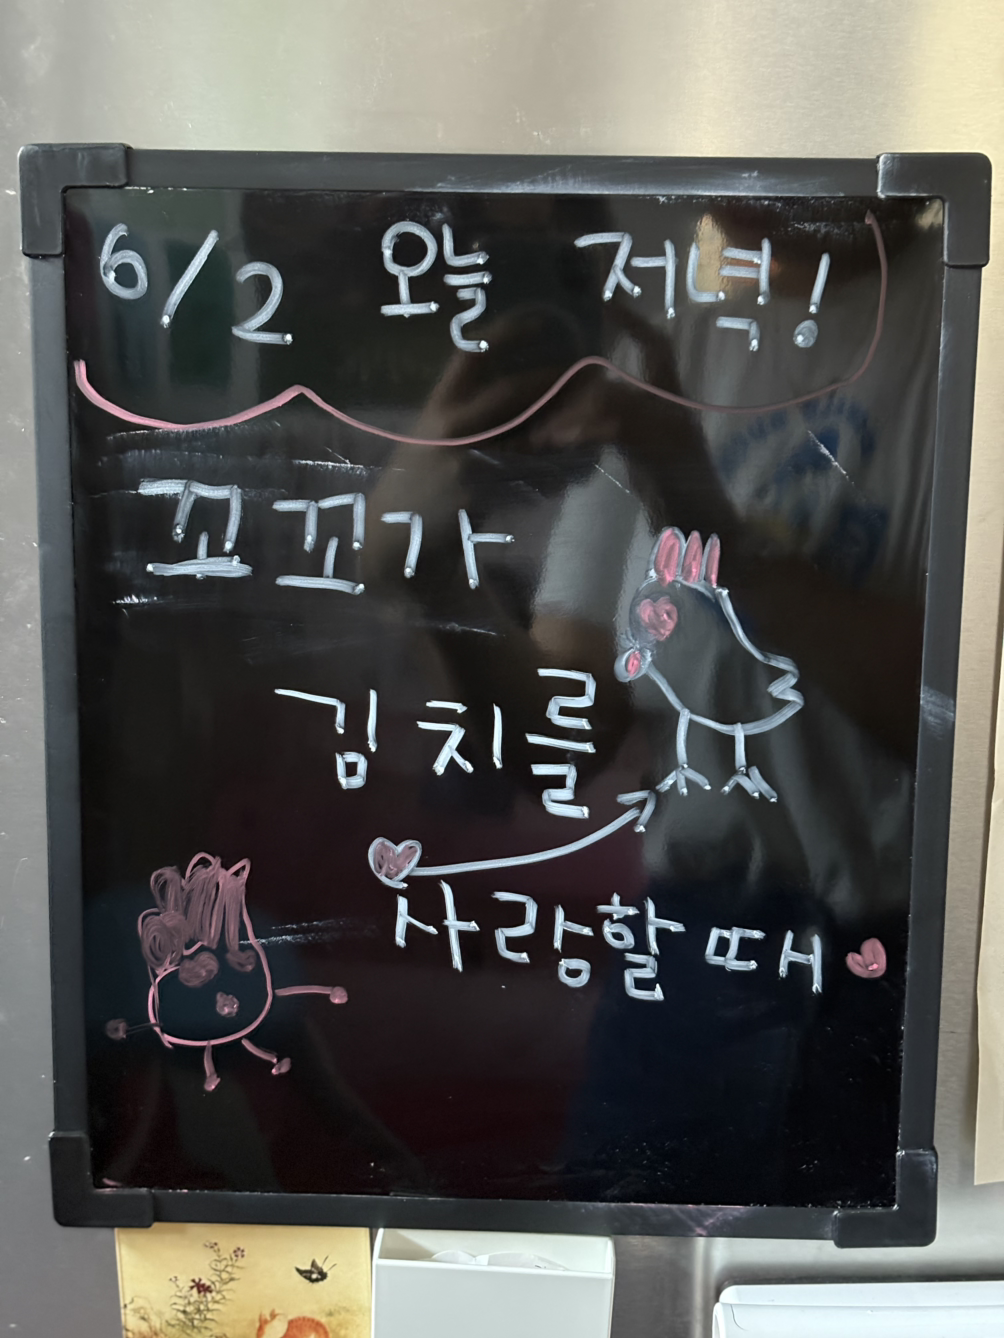 6/2 오늘 저녁!
꼬꼬가
김치를
사랑할 때